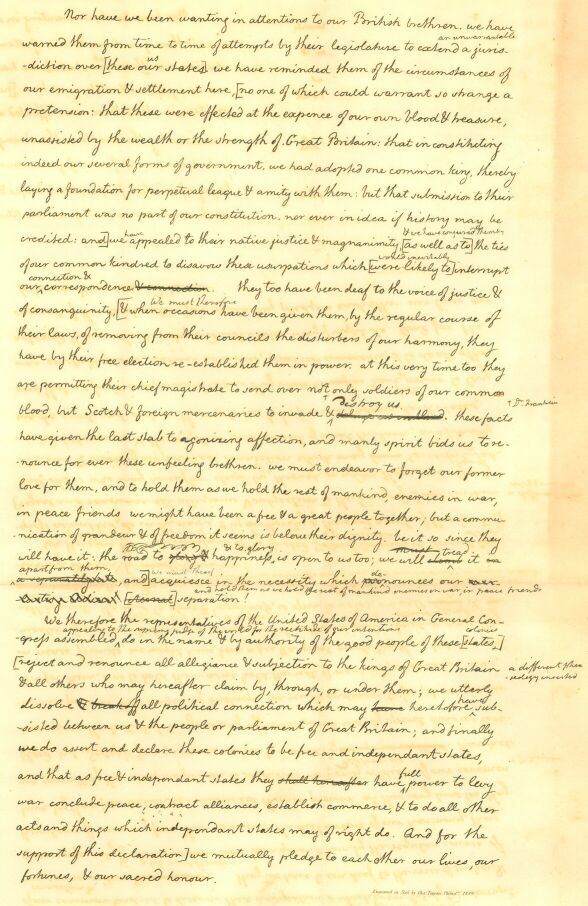 Nor have we been wanting in attentions to our British brethren. we have
an unwarrantable
warned them from time to time of attempts by their legislature to extend a juris-
us
-diction over [these our states]. we have reminded them of the circumstances of
our emigration & settlement here, [no one of which could warrant so strange a
pretension: that these were effected at the expence of our own blood & treasure,
unassisted by the wealth or the strength of Great Britain: that in constituting
indeed our several forms of government, we had adopted one common king, thereby
laying a foundation for perpetual league & amity with them: but that submission to their
parliament was no part of our constitution, nor ever in idea if history may be
have & we have conjured them by
credited: and] we appealed to their native justice & magnanimity [as well as to] the ties
would inevitably
of our common kindred to disavow these usurpations which [were likely to] interrupt
connection &
our correspondence & connection. they too have been deaf to the voice of justice &
We must therefore
of consanguinity, [& when occasions have been given them, by the regular course of
their laws, of removing from their councils the disturbers of our harmony, they
have by their free election re-established them in power. at this very time too they
are permitting their chief magistrate to send over not only soldiers of our common
destroy us † Dr. Franklin
blood, but Scotch & foreign mercenaries to invade & these facts
have given the last stab to agonizing affection, and manly spirit bids us to re-
-nounce for ever these unfeeling brethren. we must endeavor to forget our former
love for them, and to hold them as we hold the rest of mankind, enemies in war,
in peace friends we might have been a free & a great people together; but a commu-
-nication of grandeur & of freedom it seems is below their dignity. be it so since they
& to glory must tread
will have it: the road to happiness is open to us too; we will it
apart from them, de-
and] acquiesce in the necessity which pronounces our
and hold them as we hold the rest of mankind enemies in war, in peace friends
[eternal] separation!
We therefore the representatives of the United States of America in General Con-
appealing to the supreme judge of the world for the rectitude of our intentions colonies
-gress assembled, do in the name & by authority of the good people of these [states,]
[reject and renounce all allegiance & subjection to the kings of Great Britain
a different phra
-seology inserted
& all others who may hereafter claim by, through, or under them; we utterly
have
dissolve & break off all political connection which may have heretofore sub-
-sisted between us & the people or parliament of Great Britain; and finally
we do assert and declare these colonies to be free and independant states,
full
and that as free & independant states they shall hereafter have power to levy
war conclude peace, contract alliances, establish commerce, & to do all other
acts and things which independant states may of right do. And for the
support of this declaration] we mutually pledge to each other our lives, our
fortunes, & our sacred honour.